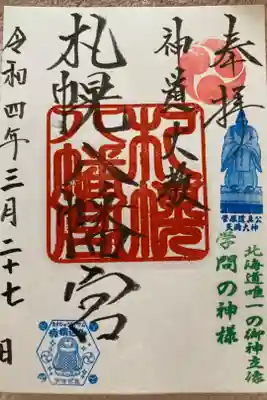 奉拝
神道大教
札幌八幡宮
令和四年三月二十七日
菅原道真公
天満大神
学問の神様
北海道唯一の御神立像